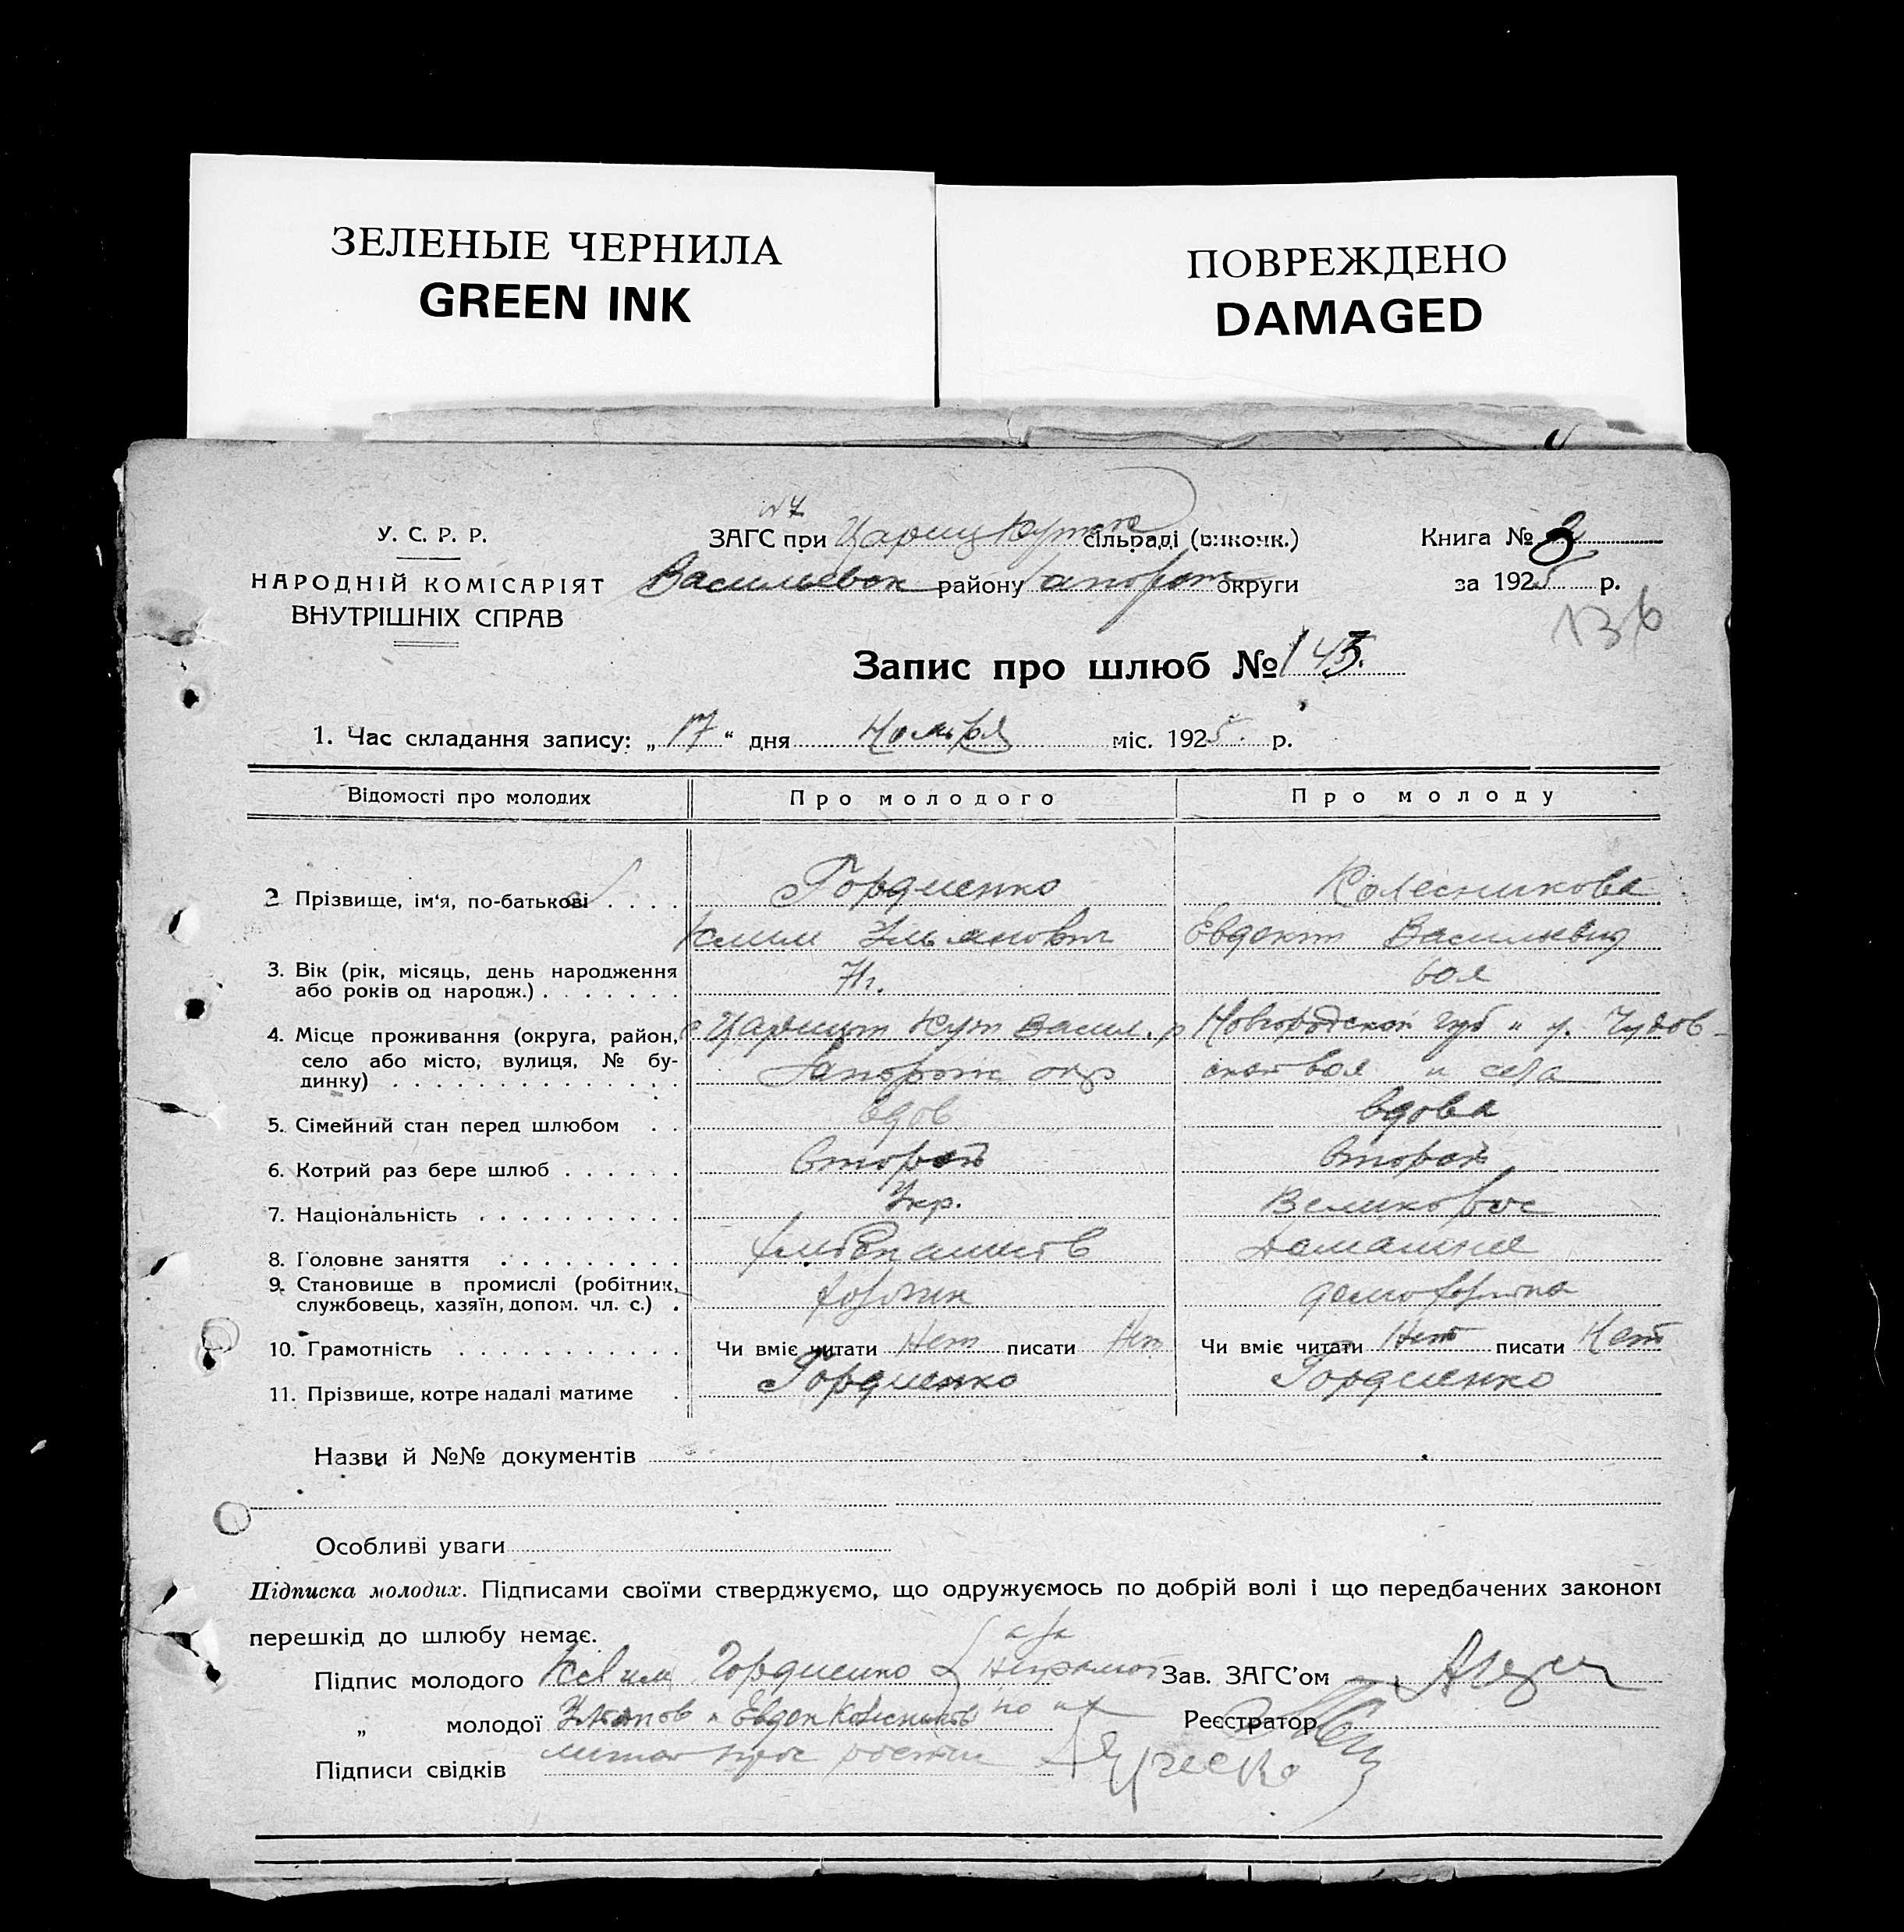 ЗЕЛЕНЫЕ ЧЕРНИЛА
GREEN INK
ПОВРЕЖДЕНО
DAMAGED
У. С. Р. Р.
НАРОДНІЙ КОМІСАРІЯТ
ВНУТРІШНІХ СПРАВ
ЗАГС при Цариц Кутск сільраді (виконк.)
Васильевск району Запорож округи
Книга № 3
за 1925 р.
136
Запис про шлюб № 145.
1. Час складання запису: „17“ дня Ноября міс. 1925. р.
Відомості про молодих
Про молодого
Про молоду
2 Прізвище, ім'я, по-батькові . . . .
Гордиенко
Колесникова
Клим Ульянович
Евдокия Васильевна
3. Вік (рік, місяць, день народження
або років од народж.) . . . . . . .
71 г.
60 л
4. Місце проживання (округа, район,
село або місто, вулиця, № бу-
динку) . . . . . . . . . . . . . .
с Царицын Кут Васил. р
Запорож окр
Новгородской губ и у. Чудов-
ской вол и села
5. Сімейний стан перед шлюбом . .
вдов
вдова
6. Котрий раз бере шлюб . . . . . .
второй
второй
7. Національність . . . . . . . . . .
Укр.
Великорос
8. Головне заняття . . . . . . . . .
хлебопашеств
Домашние
9. Становище в промислі (робітник,
службовець, хазяїн, допом. чл. с.) .
хозяин
домохозяйка
10. Грамотність . . . . . . . . . . .
Чи вміє читати Нет писати Нет
Чи вміє читати Нет писати Нет
11. Прізвище, котре надалі матиме .
Гордиенко
Гордиенко
Назви й №№ документів
Особливі уваги
Підписка молодих. Підписами своїми стверджуємо, що одружуємось по добрій волі і що передбачених законом
перешкід до шлюбу немає.
Підпис молодого Клим Гордиенко неграмот
Зав. ЗАГС'ом
„ молодої Евдок Колесников по их
Реєстратор
Підписи свідків